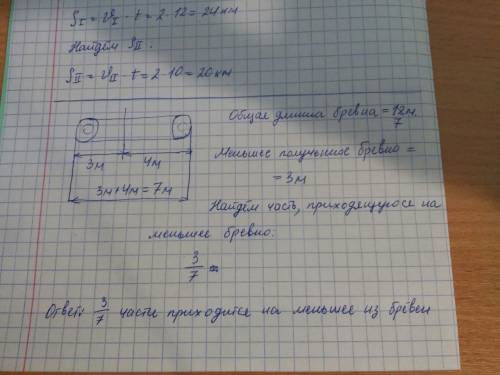 SI = υI · t = 2 · 12 = 24 км
Найдём SII.
SII = υII · t = 2 · 10 = 20 км
Общая длина бревна = 12м.
7
3м
4м
Меньшее полученное бревно =
= 3м
3м+4м = 7м
Найдём часть, приходящуюся на
меньшее бревно:
3/7
Ответ: 3/7 части приходится на меньшее из брёвен